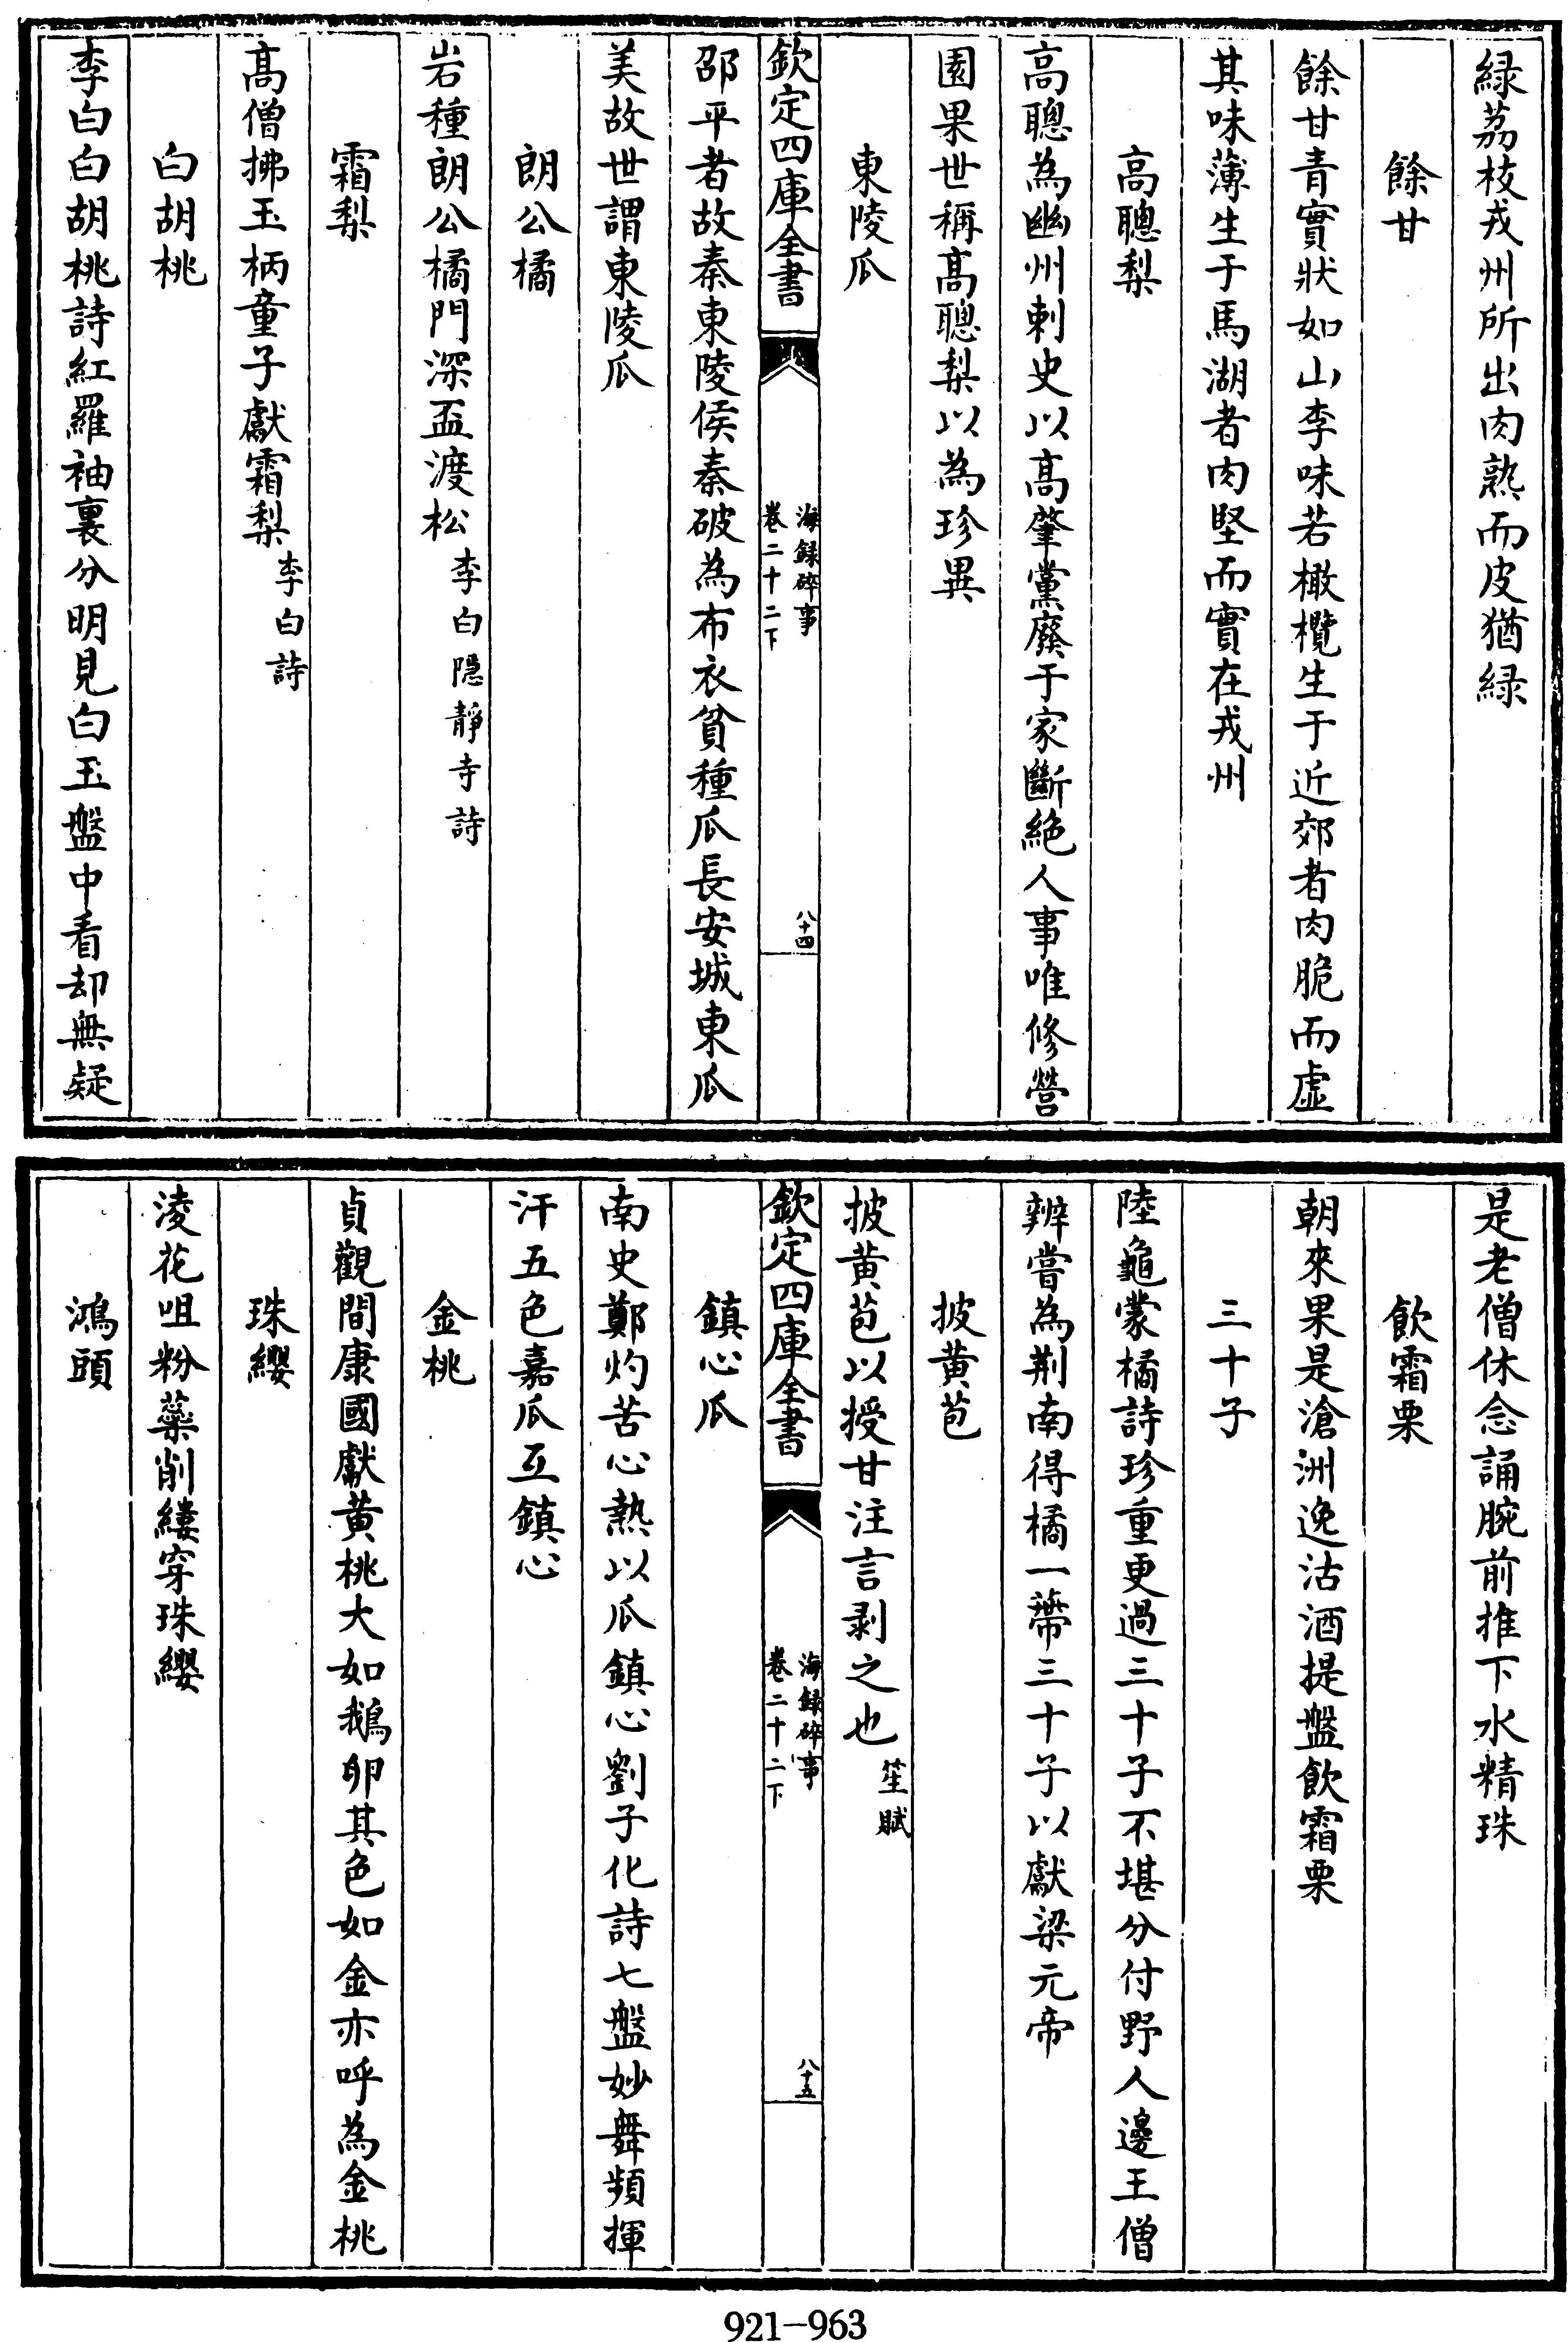 緑荔枝戎州所出肉熟而皮猶緑
餘甘
餘甘青實狀如山李味若橄欖生于近郊者肉脆而虛
其味薄生于馬湖者肉堅而實在戎州
高聰梨
高聰為幽州刺史以高肇黨廢于家斷絶人事唯修營
園果世稱高聰梨以為珍異
東陵瓜
欽定四庫全書
海録碎事
卷二十二下
八十四
邵平者故秦東陵侯秦破為布衣貧種瓜長安城東瓜
美故世謂東陵瓜
朗公橘
岩種朗公橘門深盃渡松李白隠靜寺詩
霜梨
高僧拂玉柄童子獻霜梨李白詩
白胡桃
李白白胡桃詩紅羅袖裏分明見白玉盤中看却無疑
是老僧休念誦腕前推下水精珠
飲霜栗
朝來果是滄洲逸沽酒提盤飲霜栗
三十子
陸龜蒙橘詩珍重更過三十子不堪分付野人邊王僧
辨嘗為荆南得橘一蔕三十子以獻梁元帝
披黄苞
披黄苞以授甘注言剥之也笙賦
欽定四庫全書
海録碎事
卷二十二下
八十五
鎮心瓜
南史鄭灼苦心熱以瓜鎮心劉子化詩七盤妙舞頻揮
汗五色嘉瓜互鎮心
金桃
貞觀間康國獻黄桃大如鵝卵其色如金亦呼為金桃
珠纓
淩花咀粉蘂削縷穿珠纓
鴻頭
921-963